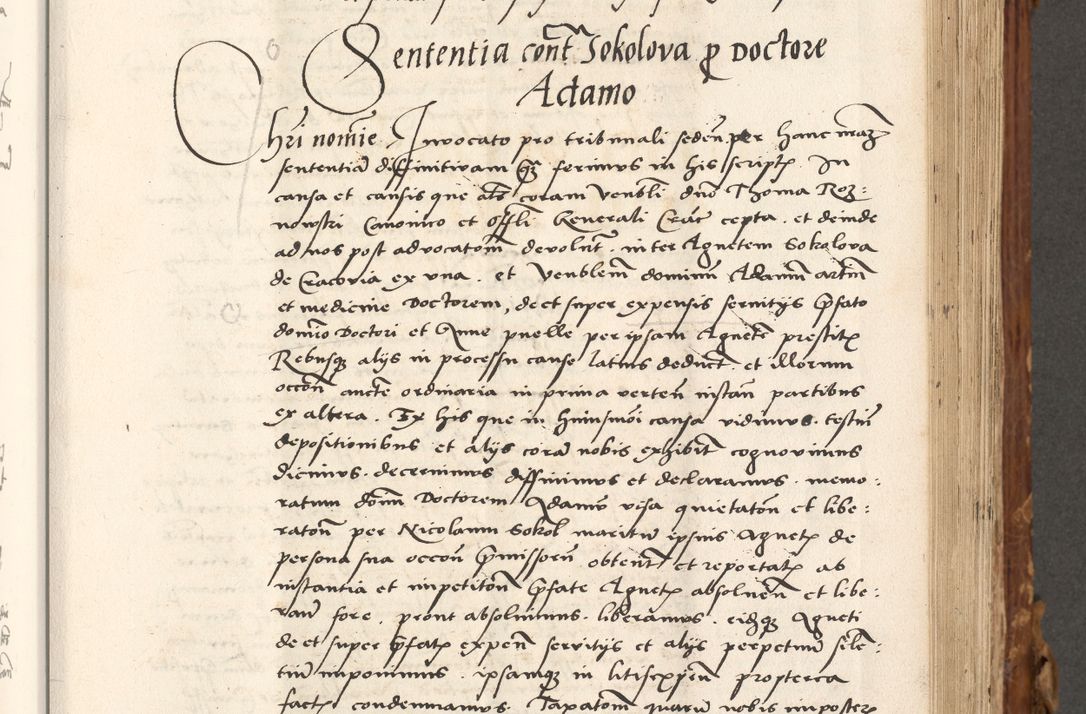 Sententia contra Sokolova p Doctore
Adamo
Chri nomie Invocato pro tribunali seden per hanc nram
sententiā diffinitivam quā ferimus in his scriptis In
causa et causis que als coram Venbli dno Thoma Roz:
nowski Canonico et Offli Generali Crac cepta . et deinde
ad nos post advocatom devolut . inter Agnetem Sokolova
de Cracovia ex una . et Venblem dominū Adamū artiū
et medicine Doctorem , de et super expensis servitijs pfato
domio Doctori et Anne puelle per ipsam Agnetē prestitis
Rebusq alijs in processu cause latius deduct . et illorum
occon aucte ordinaria in prima verten instan partibus
ex altera . Ex his que in huiusmoi causa vidimus . testiū
depositionibus et alijs corā nobis exhibit cognovimus
dicimus . decrevimus diffinimus et declaramus . memo:
ratum doim Doctorem Adamū visa quietaton et libe:
raton per Nicolaum Sokol maritū ipsius Agnetis de
persona sua occon pmissorū obtent et reportatis ab
instantia et impetiton pfate Agnetis absolven et libe:
rau fore . prout absolvimus . liberamus . eidq Agneti
de et super pfatis expen servitijs et alijs perpetuū sile:
tiū imponimus . ipsamq in litisexpen propterea
factis condemnamus . Taxatom quarū nobis imposterū